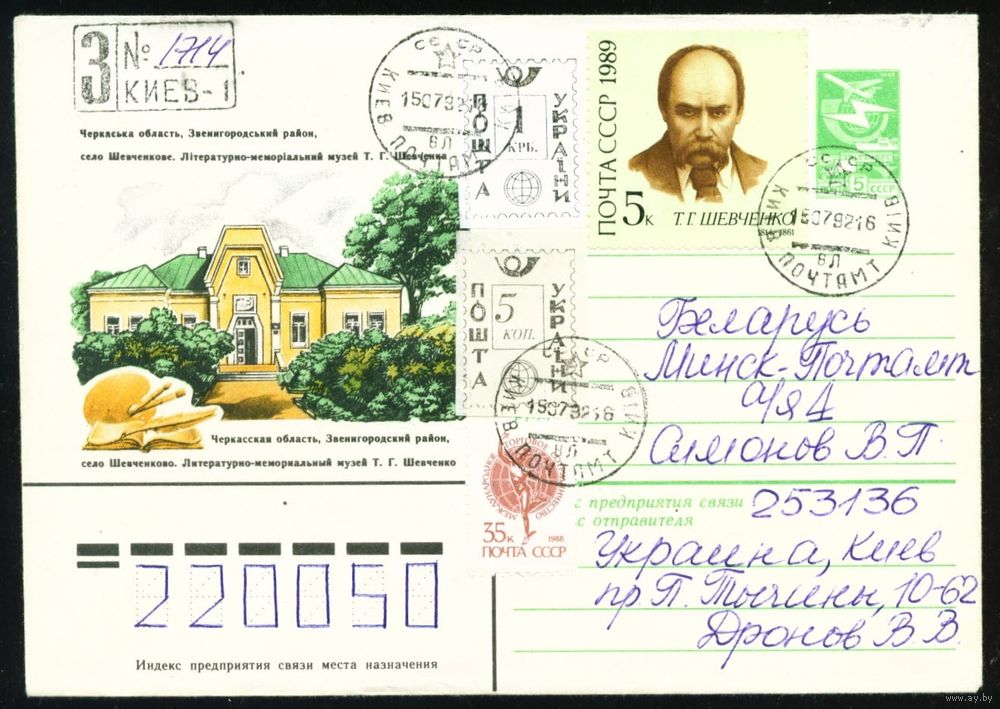 З № 1714
КИЕВ-1
Черкаська область, Звенигородський район,
село Шевченкове. Літературно-меморіальний музей Т. Г. Шевченка
Черкасская область, Звенигородский район,
село Шевченково. Литературно-мемориальный музей Т. Г. Шевченко
СССР
КИЕВ ПОЧТАМТ
150792
ВЛ
ПОШТА
1
КРБ.
УКРАЇНИ
ПОШТА
5
КОП.
УКРАЇНИ
ПОЧТА СССР 1989
5к
Т.Г. ШЕВЧЕНКО
1814-1861
5 СССР
СССР
КИЕВ ПОЧТАМТ КИЇВ
15079216
ВЛ
СССР
КИЕВ ПОЧТАМТ КИЇВ
15079216
ВЛ
35к
1988
ПОЧТА СССР
Беларусь
Минск-Почтамт
а/я 4
Симонов В.П.
с предприятия связи
с отправителя
253136
Украина, Киев
пр П. Тычины, 10-62
Дронов В.В.
220050
Индекс предприятия связи места назначения
www.ay.by